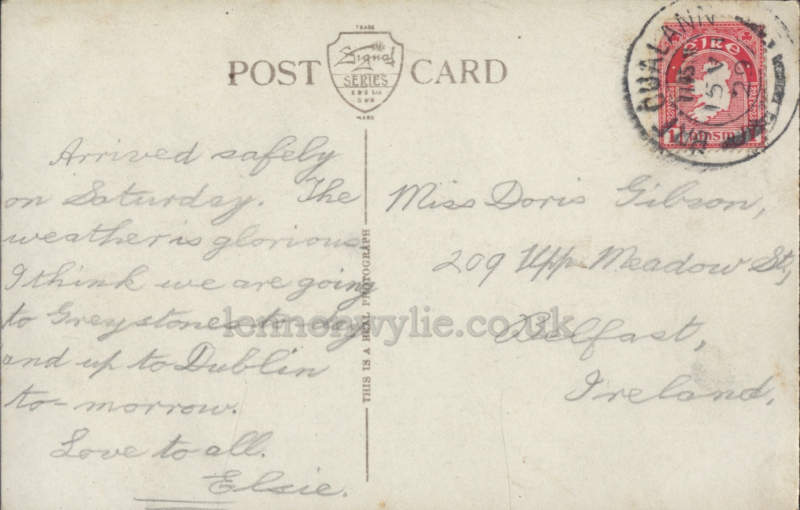 TRADE
Signal
SERIES
MARK
POST CARD
Arrived safely
on Saturday. The
weather is glorious
I think we are going
to Greystones to-day
and up to Dublin
to-morrow.
Love to all.
Elsie.
THIS IS A REAL PHOTOGRAPH
Miss Doris Gibson,
209 Upp. Meadow St,
Belfast,
Ireland.
CUALANN
éire
lennonwylie.co.uk